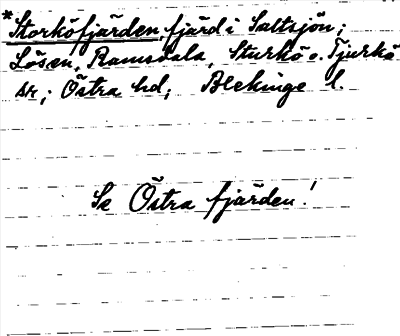 *Storköfjärden fjärd i Saltsjön;
Lösen, Ramdala, Sturkö o. Tjurkö
sr; Östra hd; Blekinge l.
Se Östra fjärden!